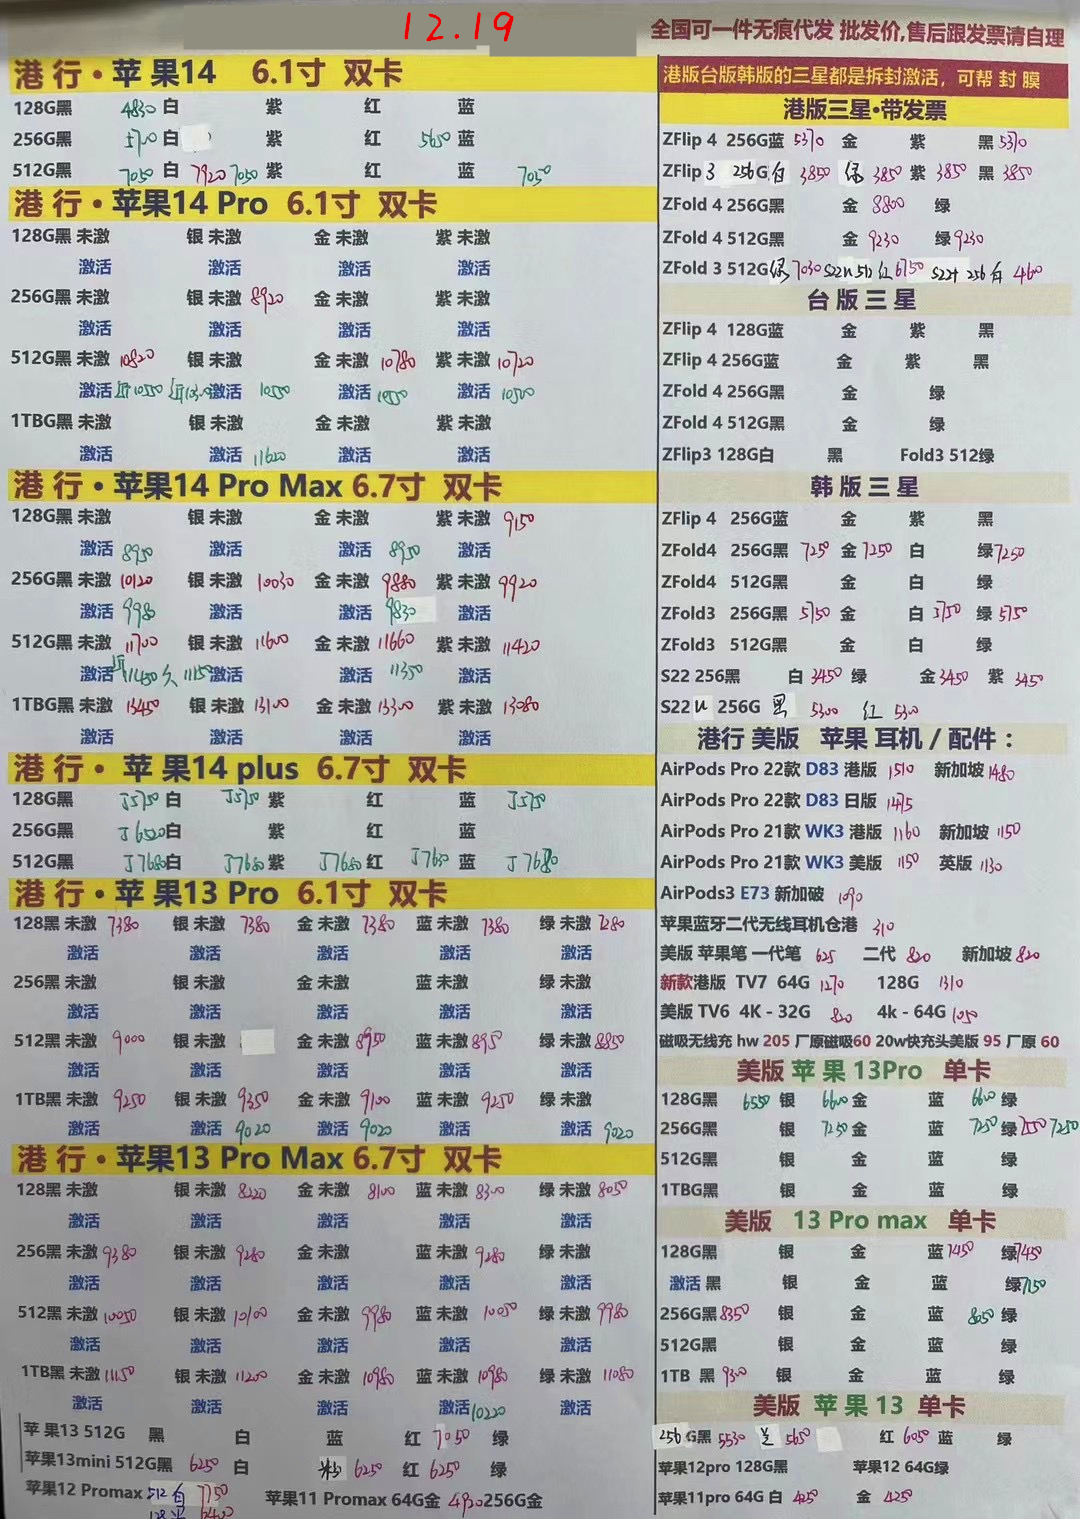 12.19
全国可一件无痕代发 批发价,售后跟发票请自理
港行·苹果14 6.1寸 双卡
128G黑 4830 白 紫 红 蓝
256G黑 5700 白 紫 红 5650 蓝
512G黑 7050 白 7920 7050 紫 红 蓝 7050
港行·苹果14 Pro 6.1寸 双卡
128G黑 未激 银 未激 金 未激 紫 未激
激活 激活 激活 激活
256G黑 未激 银 未激 8920 金 未激 紫 未激
激活 激活 激活 激活
512G黑 未激 10820 银 未激 金 未激 10780 紫 未激 10720
激活 10550 激活 10550 激活 10550 激活 10500
1TBG黑 未激 银 未激 金 未激 紫 未激
激活 激活 11620 激活 激活
港行·苹果14 Pro Max 6.7寸 双卡
128G黑 未激 银 未激 金 未激 紫 未激 9150
激活 8950 激活 激活 8950 激活
256G黑 未激 10120 银 未激 10030 金 未激 9880 紫 未激 9920
激活 9980 激活 激活 9830 激活
512G黑 未激 11700 银 未激 11600 金 未激 11660 紫 未激 11420
激活 11450 11150 激活 激活 11350 激活
1TBG黑 未激 13450 银 未激 13100 金 未激 13300 紫 未激 13080
激活 激活 激活 激活
港行·苹果14 plus 6.7寸 双卡
128G黑 J5750 白 J5750 紫 红 蓝 J5750
256G黑 J6520 白 紫 红 蓝
512G黑 J7680 白 J7680 紫 J7680 红 J7680 蓝 J7680
港行·苹果13 Pro 6.1寸 双卡
128黑 未激 7380 银 未激 7380 金 未激 7380 蓝 未激 7380 绿 未激 7280
激活 激活 激活 激活 激活
256黑 未激 银 未激 金 未激 蓝 未激 绿 未激
激活 激活 激活 激活 激活
512黑 未激 9000 银 未激 金 未激 8950 蓝 未激 8950 绿 未激 8850
激活 激活 激活 激活 激活
1TB黑 未激 9250 银 未激 9350 金 未激 9100 蓝 未激 9250 绿 未激
激活 激活 9020 激活 9020 激活 激活 9020
港行·苹果13 Pro Max 6.7寸 双卡
128黑 未激 银 未激 8220 金 未激 8100 蓝 未激 8300 绿 未激 8050
激活 激活 激活 激活 激活
256黑 未激 9380 银 未激 9280 金 未激 蓝 未激 9280 绿 未激
激活 激活 激活 激活 激活
512黑 未激 10050 银 未激 10100 金 未激 9980 蓝 未激 10050 绿 未激 9980
激活 激活 激活 激活 激活
1TB黑 未激 11150 银 未激 11200 金 未激 10980 蓝 未激 10980 绿 未激 11080
激活 激活 激活 激活 10220 激活
苹果13 512G 黑 白 蓝 红 7050 绿
苹果13mini 512G黑 6250 白 粉 6250 红 6250 绿
苹果12 Promax 512 白 7750 苹果11 Promax 64G金 4920 256G金
128 6400
港版台版韩版的三星都是拆封激活，可帮 封 膜
港版三星·带发票
ZFlip 4 256G蓝 5370 金 紫 黑 5370
ZFlip 3 256G 白 3850 绿 3850 紫 3850 黑 3850
ZFold 4 256G黑 金 8800 绿
ZFold 4 512G黑 金 9230 绿 9230
ZFold 3 512G 绿 7030 S22u 512 红 6750 S22+ 256 白 4460
台版三星
ZFlip 4 128G蓝 金 紫 黑
ZFlip 4 256G蓝 金 紫 黑
ZFold 4 256G黑 金 绿
ZFold 4 512G黑 金 绿
ZFlip3 128G白 黑 Fold3 512绿
韩版三星
ZFlip 4 256G蓝 金 紫 黑
ZFold4 256G黑 7250 金 7250 白 绿 7250
ZFold4 512G黑 金 白 绿
ZFold3 256G黑 5750 金 白 5750 绿 5750
ZFold3 512G黑 金 白 绿
S22 256黑 白 3450 绿 金 3450 紫 3450
S22 u 256G 黑 5300 红 5300
港行 美版 苹果 耳机 / 配件：
AirPods Pro 22款 D83 港版 1510 新加坡 1480
AirPods Pro 22款 D83 日版 1475
AirPods Pro 21款 WK3 港版 1160 新加坡 1150
AirPods Pro 21款 WK3 美版 1150 英版 1130
AirPods3 E73 新加破 1090
苹果蓝牙二代无线耳机仓港 310
美版 苹果笔 一代笔 625 二代 820 新加坡 820
新款港版 TV7 64G 1270 128G 1310
美版 TV6 4K - 32G 820 4k - 64G 1050
磁吸无线充 hw 205 厂原磁吸60 20w快充头美版 95 厂原 60
美版 苹果 13Pro 单卡
128G黑 6550 银 6600 金 蓝 6600 绿
256G黑 银 7250 金 蓝 7250 绿 7250 7250
512G黑 银 金 蓝 绿
1TBG黑 银 金 蓝 绿
美版 13 Pro max 单卡
128G黑 银 金 蓝 7450 绿 7450
激活 黑 银 金 蓝 绿 7150
256G黑 8350 银 金 蓝 8050 绿
512G黑 银 金 蓝 绿
1TB 黑 9300 银 金 蓝 绿
美版 苹果 13 单卡
256 G黑 5530 兰 5650 红 6050 蓝 绿
苹果12pro 128G黑 苹果12 64G绿
苹果11pro 64G 白 4250 金 4250